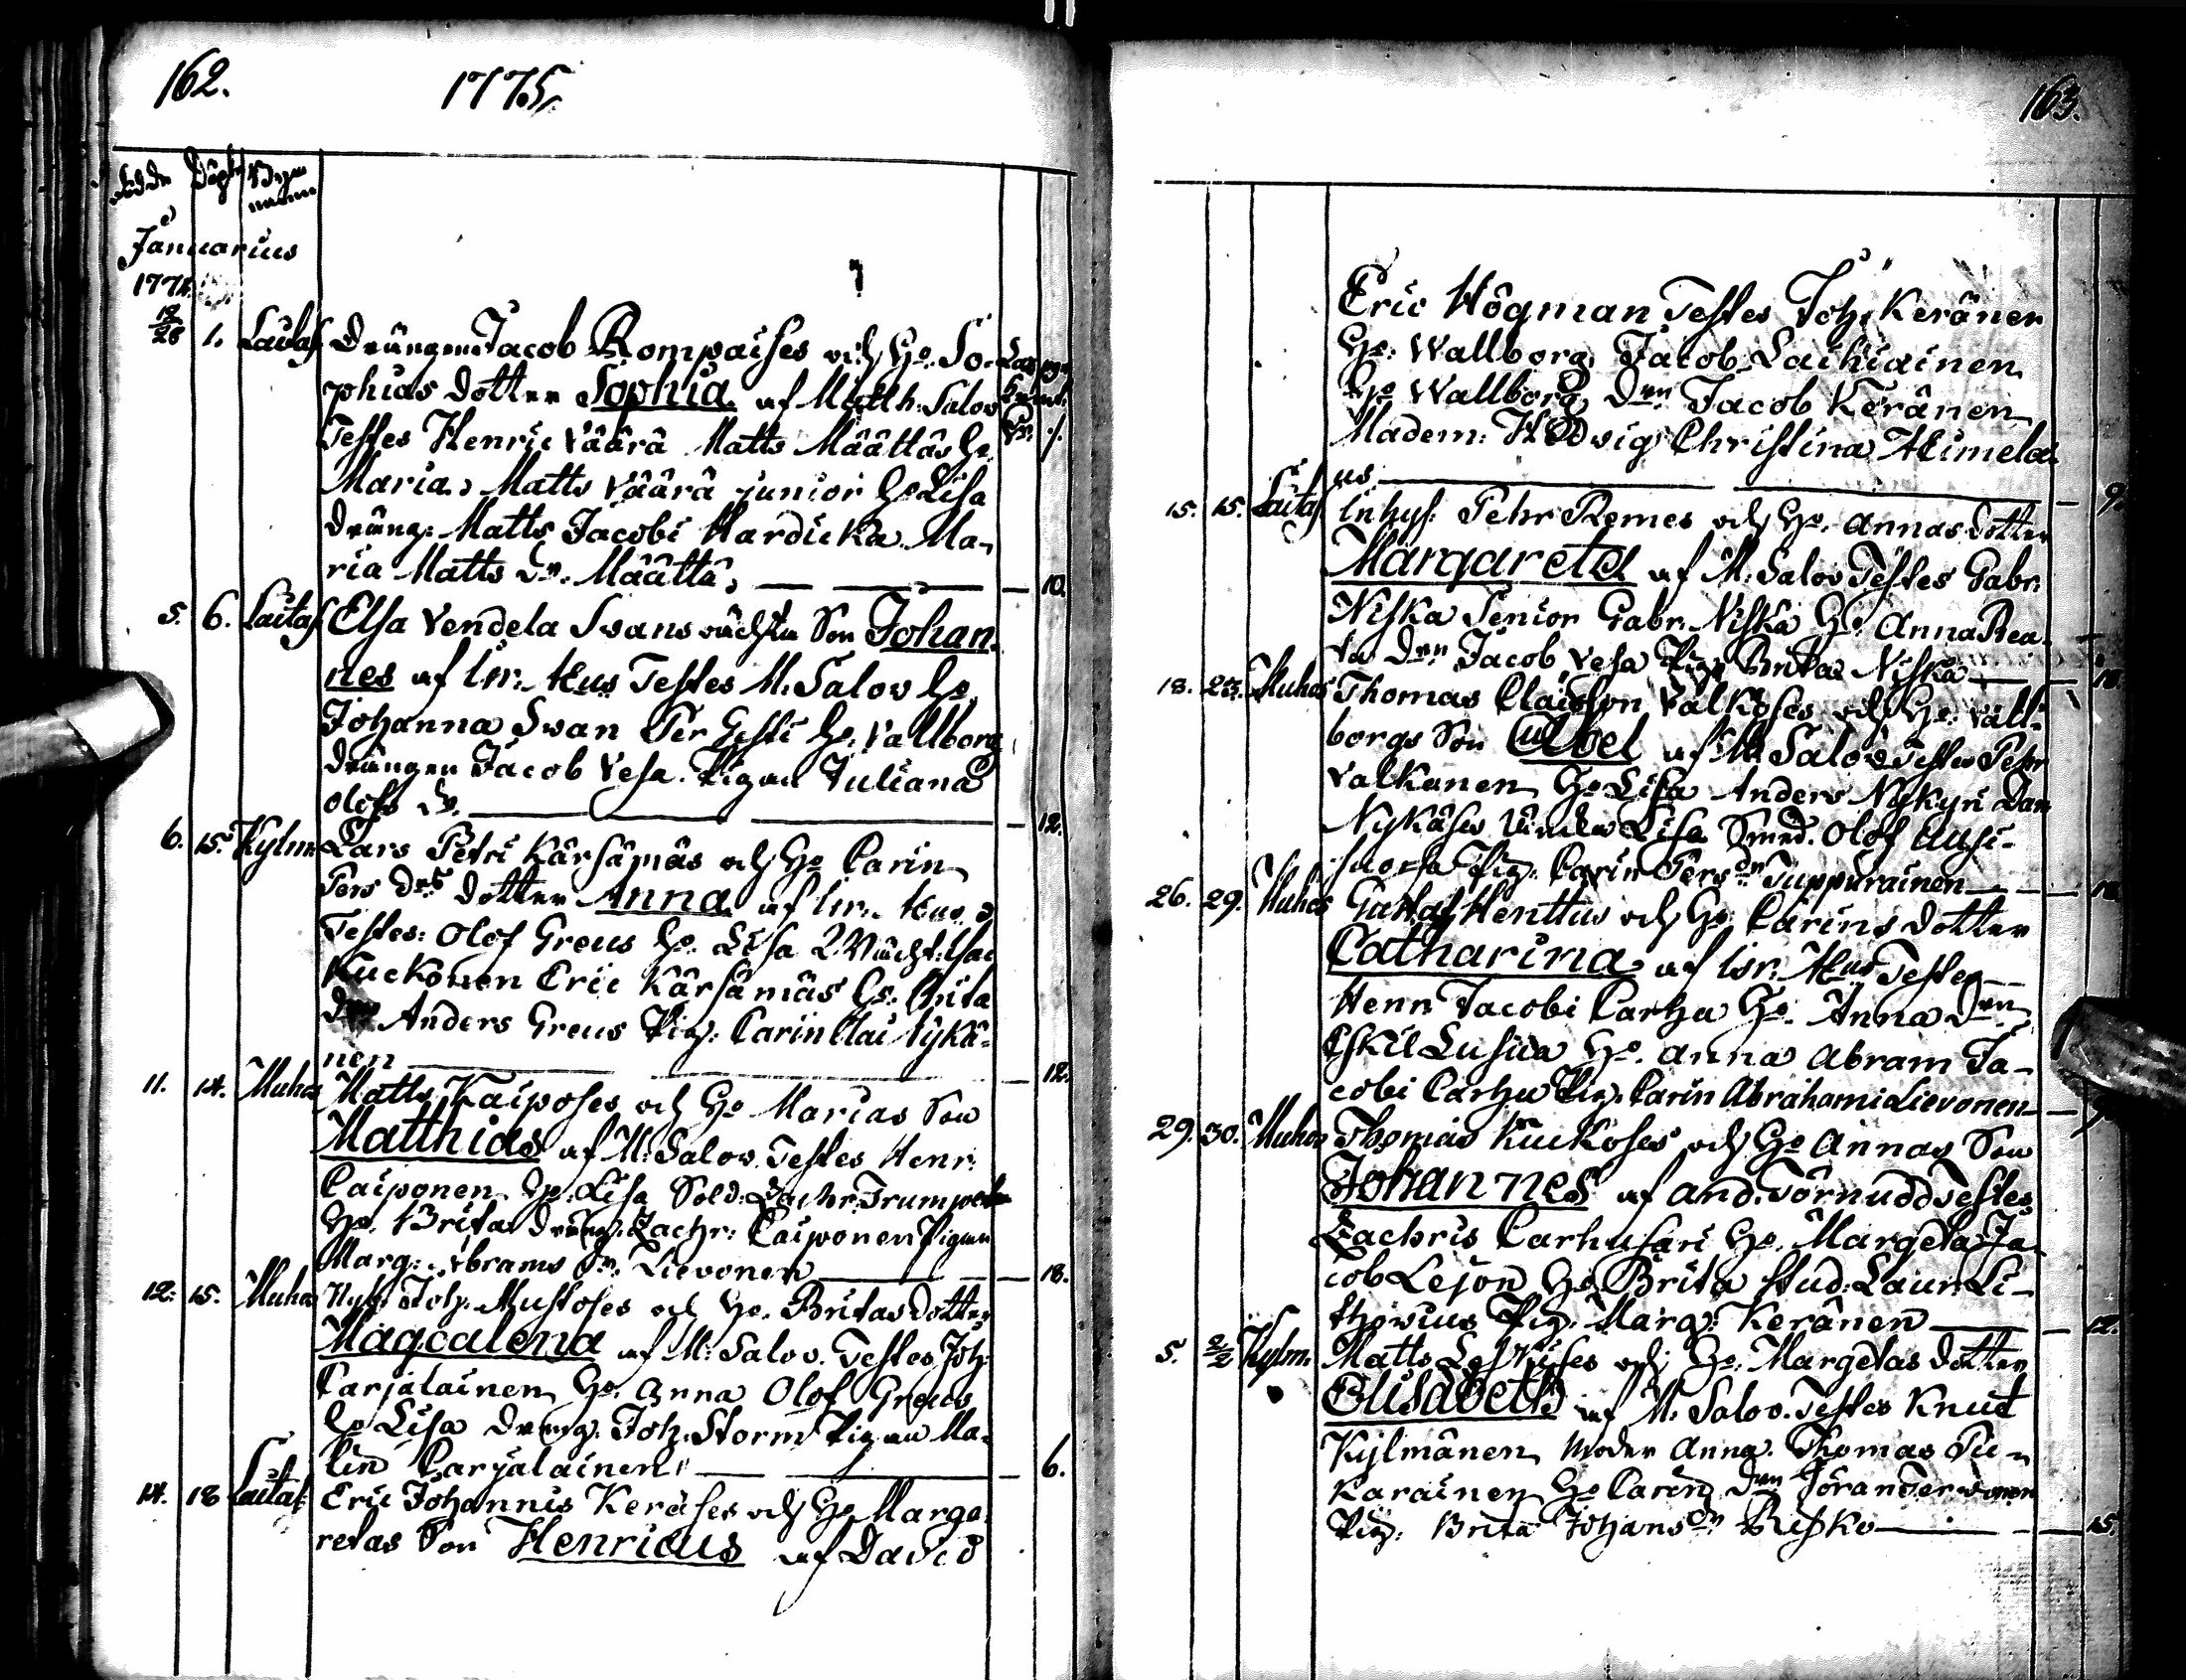 162. 1775.
Födde Döpte Byens namn
Januarius
1774.
12/28 1. Laitas. Drängen Jacob Rompaises och Ho. So-
phias dotter Sophia af M: Salov
Testes Henric Väärä Matts Määttäs Ho.
Maria, Matts Väärä junior Ho Lisa
dräng: Matts Jacobi Hardicka Ma-
ria Matts dr. Määttä, 10.
5. 6. Laitas. Elsa Vendela Svans oächta Son Johan-
nes af Er: Heus Testes M. Salov Ho.
Johanna Swan Per Gesti Ho. Vallborg
drängen Jacob Vesa. Pigan Juliana
Olofs dr. 12.
6. 15. Kylm. Lars Petri Kärsämäs och Ho Carin
Pers drs dotter Anna af Er. Heus
Testes: Olof Greus Ho. Lisa Isac
Kuckonen Eric Kärsämäs Ho. Brita
Anders Greus Pig: Carin Clai Nykä-
nen 12.
11. 14. Muhos Matts Kaiposes och Ho Marias Son
Matthias af M: Salov. Testes Henr.
Caiponen Ho. Lisa Sold: Zachr. Trumpet
Ho. Brita dräng. Zachr: Caiponen Pigan
Marg: Abrams dr. Lievonen 18.
12. 15. Muhos Nyb. Joh. Mustoses och Ho. Britas dotter
Magdalena af M: Salov. Testes Joh:
Carjalainen Ho. Anna Olof Greus
Ho Lisa dräng. Joh. Storm Pigan Ma-
lin Carjalainen 6.
14. 18 Laitas. Eric Johannis Keräses och Ho Marga-
retas Son Henricus af David
163.
Eric Högman Testes Joh. Keränen
Ho: Wallborg, Jacob Laihiainen
Ho Wallborg, Drn Jacob Keränen
Madem: Hedvig Christina Heimela-
us 9.
15. 15. Laitas. Inhys: Pehr Remes och Ho. Annas dotter
Margareta af M: Salov Testes Gabr.
Niska Senior Gabr. Niska Ho. Anna Rea-
ta Drn Jacob Vesa Pig. Brita Niska 18.
18. 23. Muhos Thomas Claisson Valkoses och Ho: Vall-
borgs Son Abel af M: Salov Testes Pehr
Valkanen Ho Lisa Anders Nykyri Dan
Nykäses Lisa Smed. Olof Ausi-
Pig. Carin Pers dr Tuppurainen 18.
26. 29. Muhos Gustaf Henttus och Ho. Carins dotter
Catharina af Er. Heus Testes
Henr. Jacobi Carhu Ho. Anna Drn
Eskil Lusua Ho. Anna Abram Ja-
cobi Carhu Pig. Carin Abrahami Lievonen 9.
29. 30. Muhos Thomas Kuckoses och Ho Annas Son
Johannes af And. Törnudd Testes
Zachris Carhusari Ho. Margeta Ja-
cob Lejon Ho. Brita Stud: Laur. Li-
thovius Pig. Marg: Keränen 12.
5. 2/2 Kylm. Matts Leskises och Ho. Margetas dotter
Elisabeth af M: Salov. Testes Knut
Kylmänen Moder Anna. Thomas Pu-
karainen Ho Carin Drn Jöran Tervonen
Pig: Brita Johans dr Risko 15.